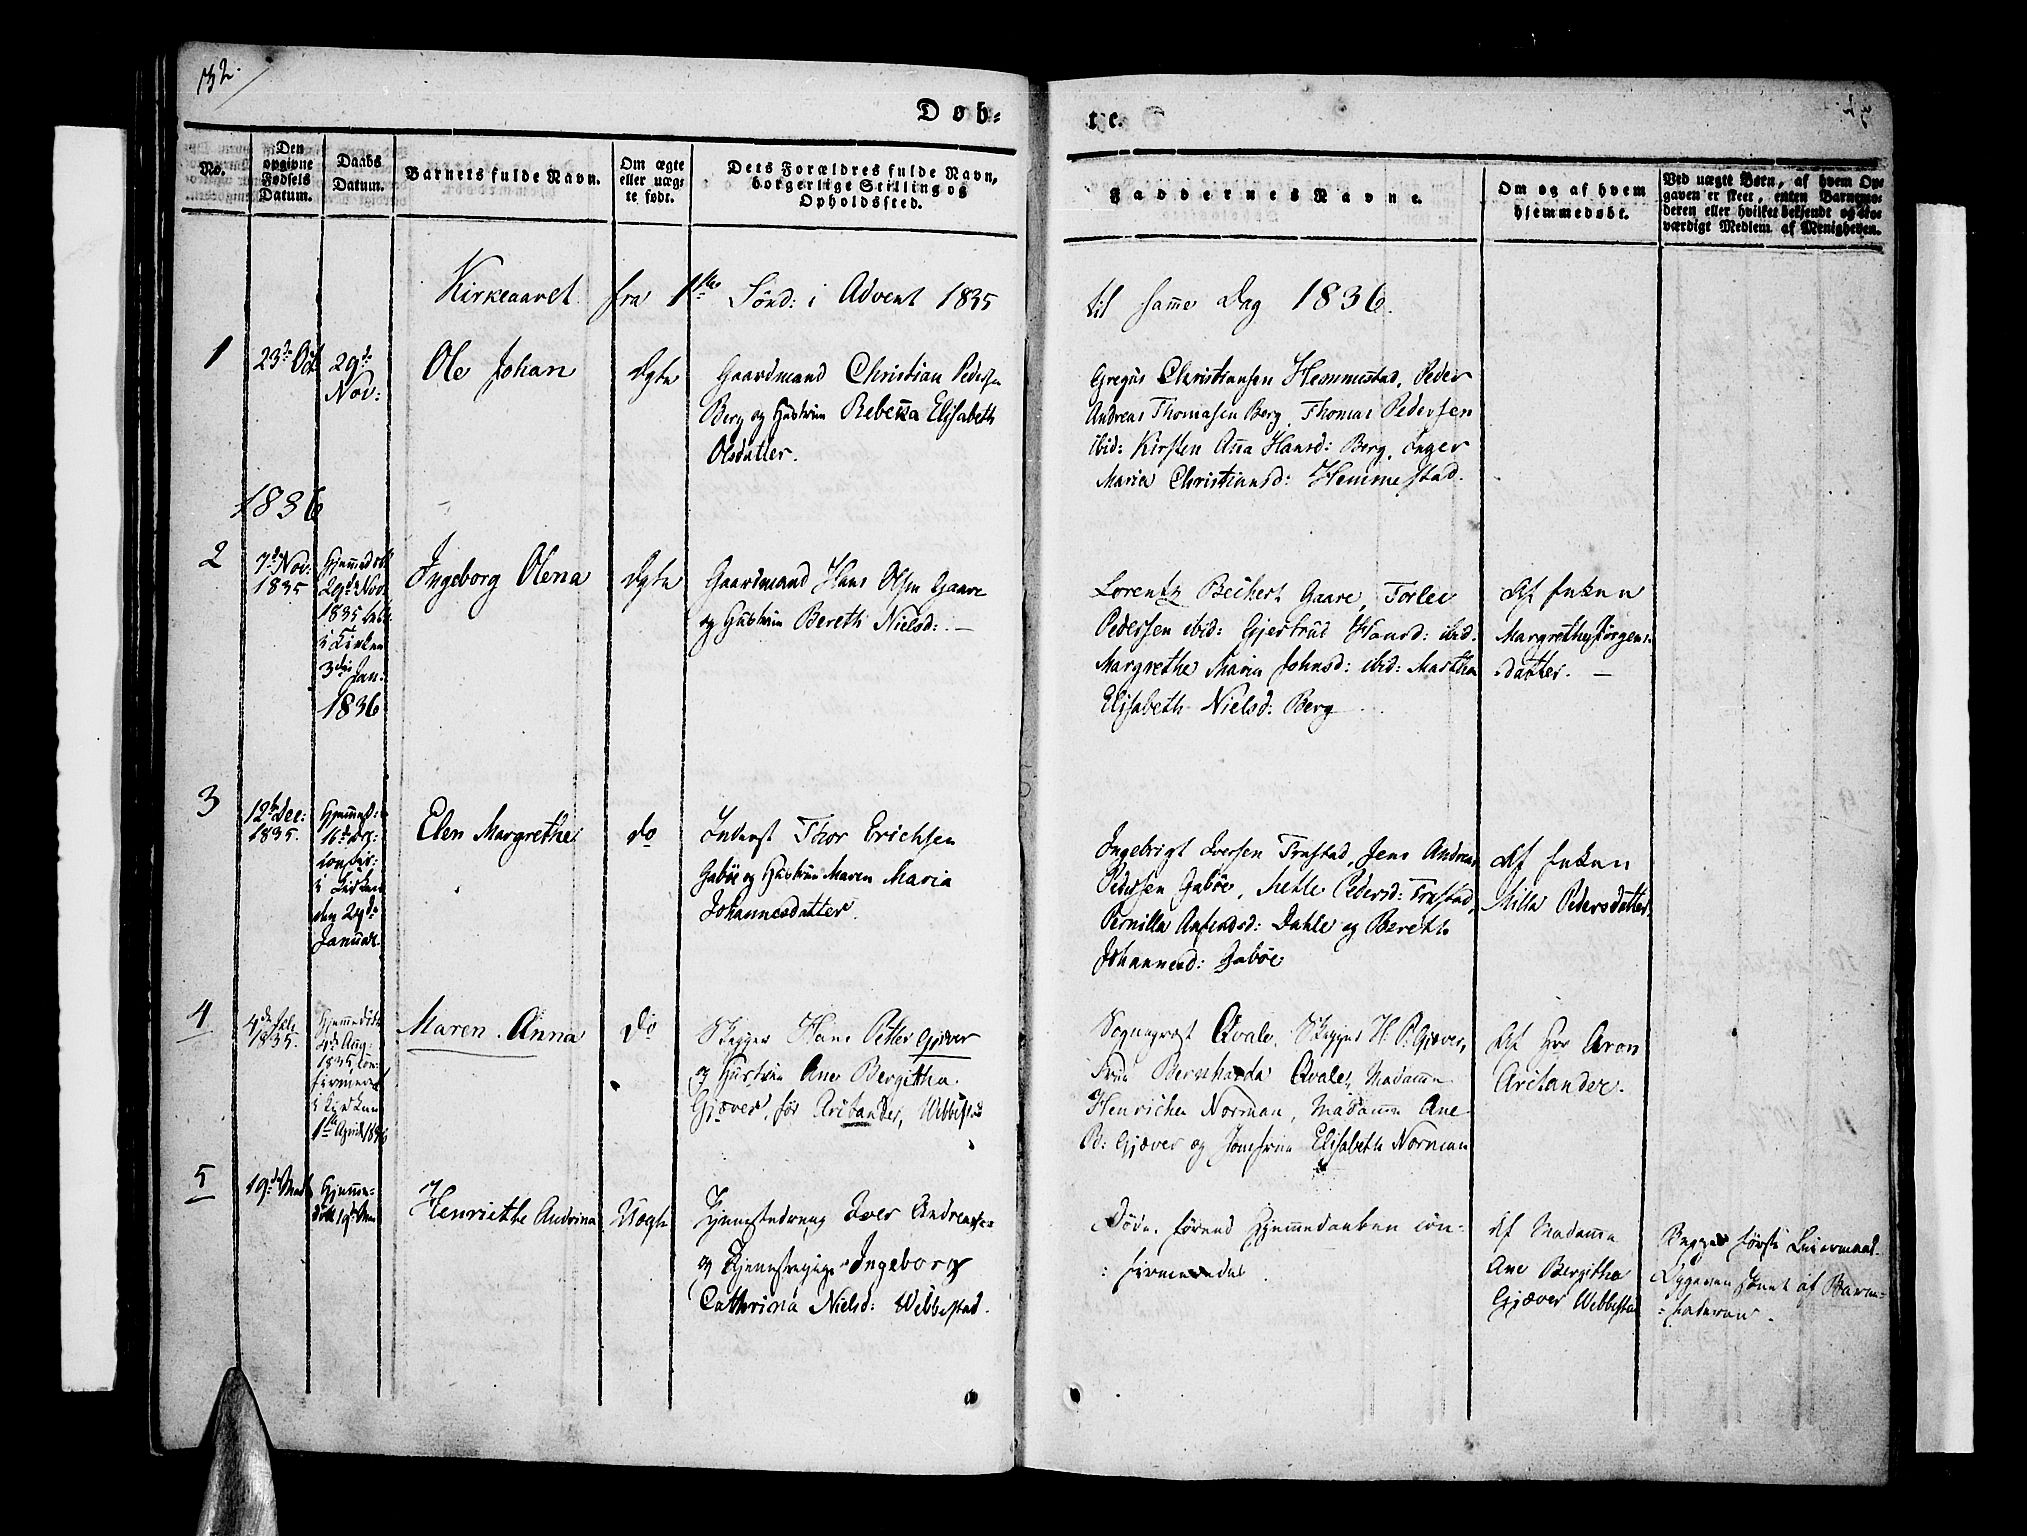 132.
Døb-
te.
No.
Den
opgivne
Fødsels
Datum.
Daabs
Datum.
Barnets fulde Navn.
Om ægte
eller uæg-
te født.
Dets Forældres fulde Navn,
borgerlige Stilling og
Opholdssted.
Faddernes Navne.
Om og af hvem
hjemmedøbt.
Ved uægte Børn, af hvem Op-
gaven er skeet, enten Barnemo-
deren eller hvilket bekjendt og tro-
værdigt Medlem af Menigheden.
Kirkeaaret fra 1ste Sönd: i Advent 1835
til samme Dag 1836.
1
23de Oct
29de
Nov:
Ole Johan
Ægte
Gaardmand Christian Pedersen
Berg og Hustrue Rebecca Elisabeth
Olsdatter.
Gregus Christiansen Hemmestad, Peder
Andreas Thomasen Berg, Thomas Pedersen
ibid: Kirsten Anna Hansd: Berg, Inger
Maria Christiansd: Hemmestad.
1836
2
7de Nov:
1835
Hjemmedöbt
29de Nov
1835
i Kirken
3die Jan:
1836
Ingeborg Olena
Ægte
Gaardmand Hans Olsen Gaare
og Hustrue Bereth Nielsd: —
Lorentz Beckert Gaare, Torlev
Pedersen ibid: Gjertrud Hansd: ibid.
Margrethe Maria Johnsd: ibid: Martha
Elisabeth Nielsd: Berg
Af Enken
Margrethe Jörgens-
datter. —
3
12te Dec:
1835.
Hjemmed:
16de Dec:
confir:
i Kirken
den 29de
Januar
Elen Margrethe
do
Inderst Thor Erichsen
Gaböe og Hustrue Maren Maria
Johannesdatter.
Ingebrigt Iversen Trustad, Jens Andreas
Pedersen Gaböe, Mette Pedersd: Trustad,
Pernilla Anfindsd: Dahle og Bereth
Johannesd: Gaböe
Af Enken
Milla Pedersdatter
4
4de Juli
1835.
Hjemmedöbt
4de Aug:
1835, con-
firmeret
i Kirken
1ste April 1836
Maren Anna
do
Skipper Hans Petter Gjæver
og Hustrue Ane Bergitha
Gjæver, för Aritander, Webbestad
Sogneprest Qvale, Skipper H. P. Gjæver,
Frue Bernharda Qvale, Madamme
Henrichen Norman, Madamme Ane
B: Gjæver og Jomfrue Elisabeth Norman
Af Hrr Aron
Aritander.
5
19de Mai
Hjemme-
döbt 19de Mai
Henriethe Andrina
Uægte
Tjenestedreng Iver Andreasse
og Tjenestepige Ingeborg
Cathrina Nielsd: Webbestad.
Döde förend Hjemmedaaben con-
firmeredes.
Af Madamme
Ane Bergitha
Gjæver Webbestad
Begges förste Leiermaal.
Opgaven skeet af Barne-
faderen.